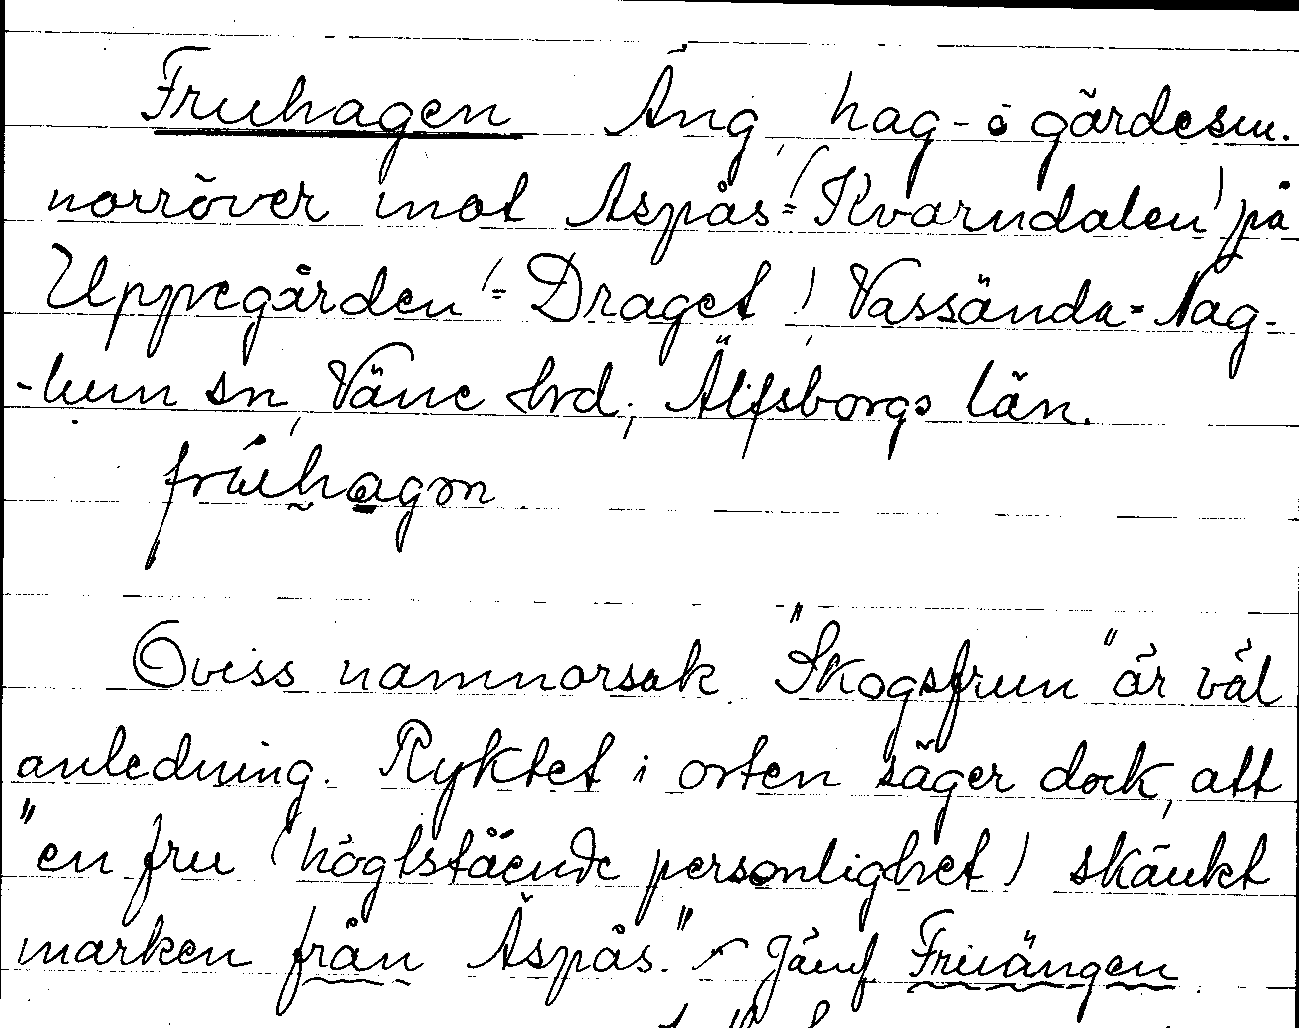 Fruhagen Äng, hag- o gärdesm.
norröver mot Aspås (= Kvarndalen) på
Uppegården (= Draget) Vassända-Nag-
-lum sn, Väne hrd, Älfsborgs län.
frúehagon
Oviss namnorsak. "Skogsfrun" är väl
anledning. Ryktet i orten säger dock, att
"en fru (högtstående personlighet) skänkt
marken från Åspås." - Jämf. Fruängen.